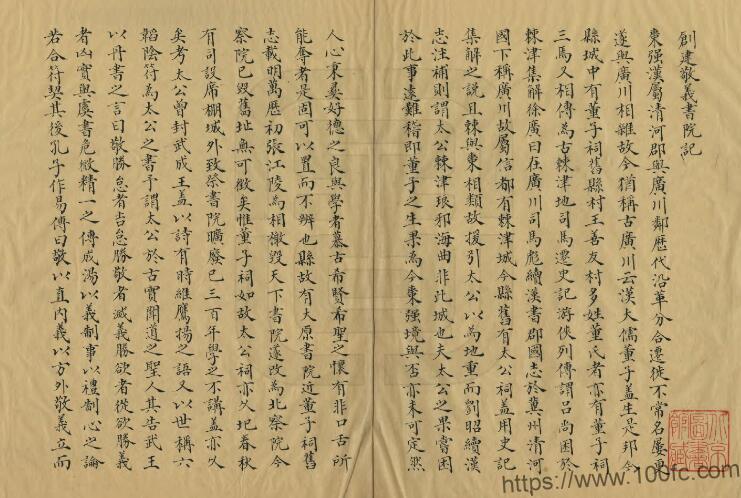 創建敬義書院記
棗强漢屬清河郡與廣川鄰歷代沿革分合遷徙不常名屢更
遂與廣川相雜故今猶稱古廣川云漢大儒董子蓋生是邦今
縣城中有董子祠舊縣村王善友村多姓董氏者亦有董子祠
三焉又相傳為古棘津地司馬遷史記游俠列傳謂呂尚困於
棘津集解徐廣曰在廣川司馬彪續漢書郡國志於冀州清河
國下稱廣川故屬信都有棘津城今縣舊有太公祠蓋用史記
集解之說且棘與棗相類故援引太公以為地重而劉昭續漢
志注補則謂太公棘津琅邪海曲非此城也夫太公之果嘗困
於此事遠難稽即董子之生果為今棗强境與否亦未可定然
人心秉彝好德之良與學者慕古希賢希聖之懷有非口舌所
能奪者是固可以置而不辨也縣故有大原書院近董子祠舊
志載明萬歷初張江陵為相檄毀天下書院遂改為北察院今
察院已毀舊址無可徵矣惟董子祠如故太公祠亦久圮春秋
有司設席棚城外致祭書院曠廢已三百年學之不講蓋亦久
矣考太公曾封武成王蓋以詩有時維鷹揚之語又以世稱六
韜陰符為太公之書予謂太公於古實聞道之聖人其告武王
以丹書之言曰敬勝怠者吉怠勝敬者滅義勝欲者從欲勝義
者凶實與虞書危微精一之傳成湯以義制事以禮制心之論
若合符契其後孔子作易傳曰敬以直內義以方外敬義立而
https://www.100fc.com